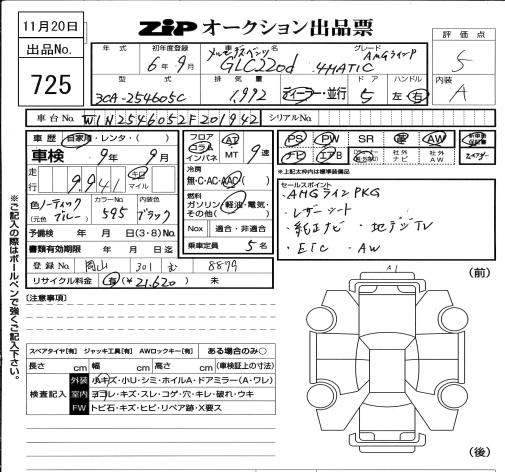 11月20日
出品No.
725
ZIP オークション出品票
評価点
S
内装
A
年式 初年度登録 車名 グレード
6年9月 メルセデスベンツ GLC220d 4MATIC AMGラインP
型式 排気量 ドア ハンドル
3CA-254605C 1,992 ディーラー・並行 5 左・右
車台No. W1N2546052F201942 シリアルNo.
車歴 自家用・レンタ・( )
車検 9年9月
走行 9,941 キロ マイル
色 ノーティックブルー (元色) カラーNo. 595 内装色 ブラック
予備検 年 月 日(3・8)No.
書類有効期限 年 月 日迄
登録No. 岡山 301 む 8879
リサイクル料金 有(¥21,620) 未
フロア コラム インパネ AT MT 9速
冷房 無・C・AC・AAC
燃料 ガソリン・軽油・電気・その他( )
Nox 適合・非適合
乗車定員 5名
PS PW SR 革 AW 新車時保証書
ナビ エアB 社外ナビ 社外AW
*上記太枠内は標準装備品
セールスポイント
・AMGラインPKG
・レザーシート
・純正ナビ ・地デジTV
・ETC ・AW
※ご記入の際はボールペンで強くご記入下さい。
[注意事項]
スペアタイヤ[有] ジャッキ工具[有] AWロックキー[有] ある場合のみ○
長さ cm 幅 cm 高さ cm (車検証上の寸法)
検査記入
外装 小キズ・小U・シミ・ホイルA・ドアミラー(A・ワレ)
室内 ヨゴレ・キズ・スレ・コゲ・穴・キレ・破れ・ウキ
FW トビ石・キズ・ヒビ・リペア跡・X要ス
(前)
A1
(後)